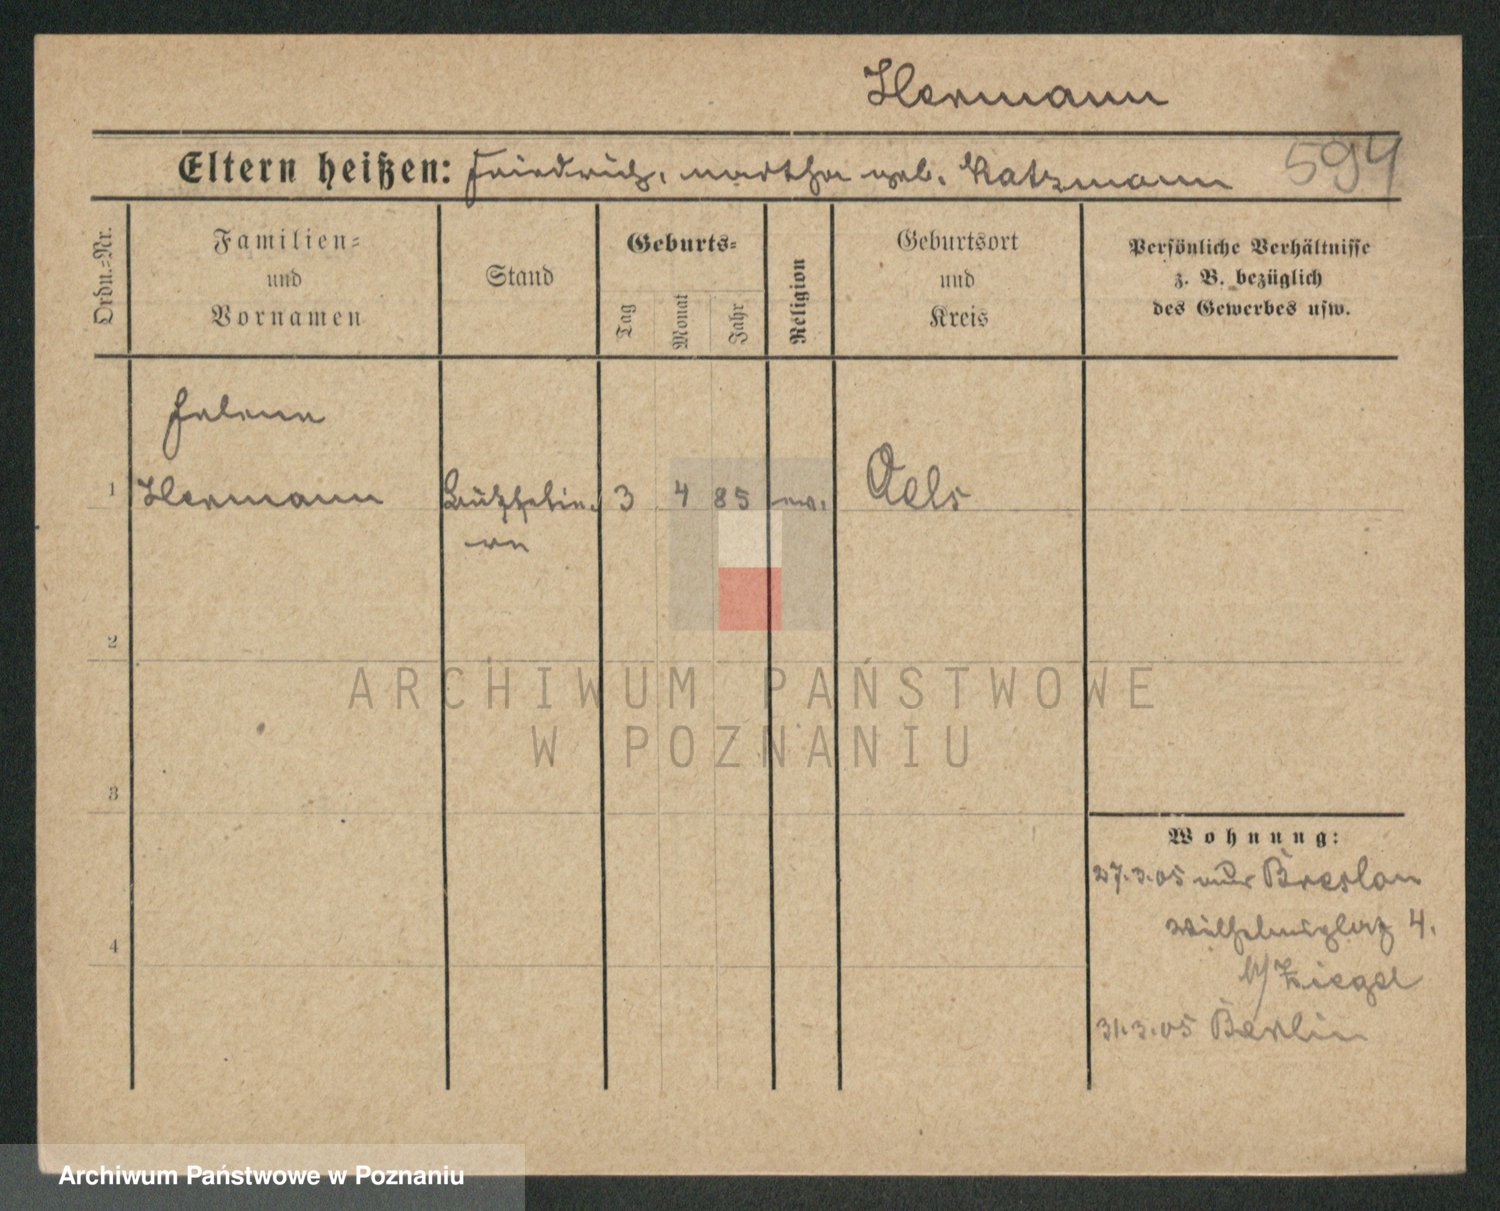 Hermann
594
Eltern heißen: Friedrich, Martha geb. Katzmann
Ordn.-Nr.
Familien- und Vornamen
Stand
Geburts-
Tag
Monat
Jahr
Religion
Geburtsort und Kreis
Persönliche Verhältnisse
z. B. bezüglich
des Gewerbes usw.
Helene
1 Hermann 3 4 85 ev. Oels
2
ARCHIWUM PAŃSTWOWE
W POZNANIU
3
Wohnung:
27.3.05 Breslau
4
Wilhelmsplatz 4.
b/ Ziegel
31.3.05 Berlin
Archiwum Państwowe w Poznaniu